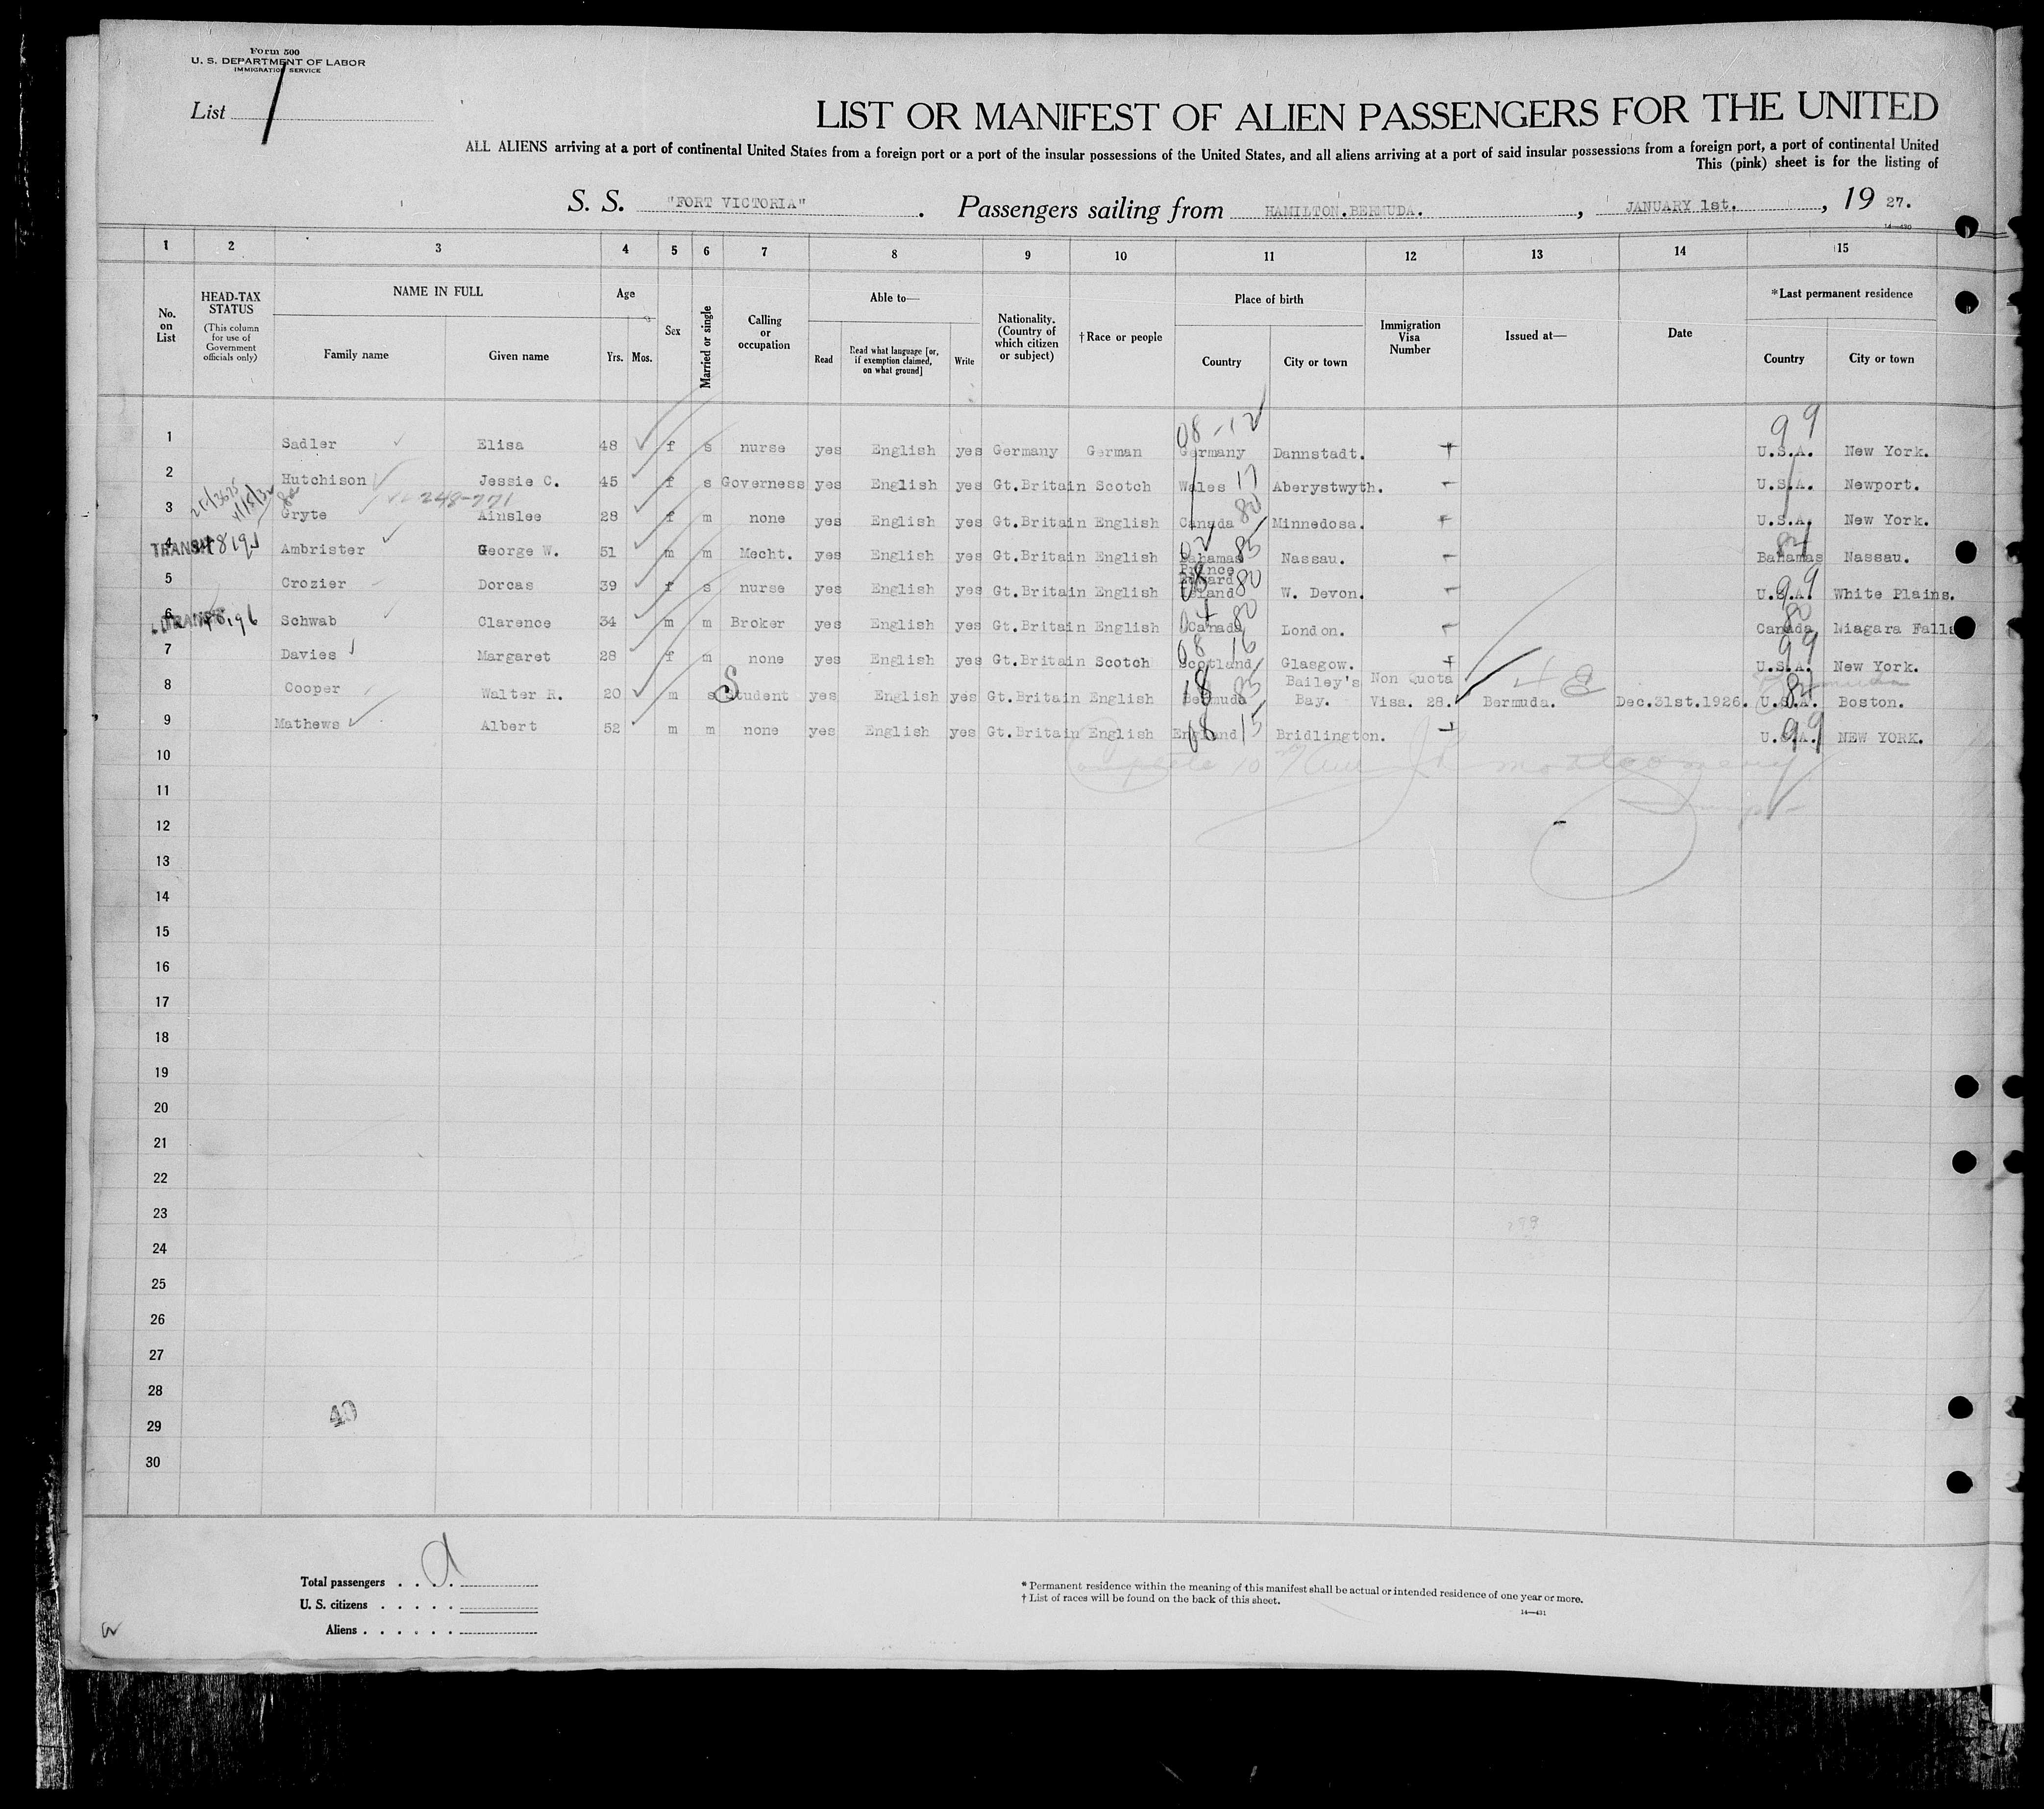 Form 500
U. S. DEPARTMENT OF LABOR
IMMIGRATION SERVICE
List 1
LIST OR MANIFEST OF ALIEN PASSENGERS FOR THE UNITED
ALL ALIENS arriving at a port of continental United States from a foreign port or a port of the insular possessions of the United States, and all aliens arriving at a port of said insular possessions from a foreign port, a port of continental United
This (pink) sheet is for the listing of
S. S. "FORT VICTORIA" . Passengers sailing from HAMILTON.BERMUDA. , JANUARY 1st. , 19 27.
14—430
1 2 3 4 5 6 7 8 9 10 11 12 13 14 15
No. on List
HEAD-TAX STATUS (This column for use of Government officials only)
NAME IN FULL
Family name Given name
Age
Yrs. Mos.
Sex
Married or single
Calling or occupation
Able to—
Read
Read what language [or, if exemption claimed, on what ground]
Write
Nationality. (Country of which citizen or subject)
† Race or people
Place of birth
Country City or town
Immigration Visa Number
Issued at—
Date
*Last permanent residence
Country City or town
1 Sadler Elisa 48 f s nurse yes English yes Germany German Germany 08-12 Dannstadt. U.S.A. 99 New York.
2 Hutchison Jessie C. 45 f s Governess yes English yes Gt.Britain Scotch Wales 17 Aberystwyth. U.S.A. Newport.
248-771
3 Gryte Ainslee 28 f m none yes English yes Gt.Britain English Canada 80 Minnedosa. U.S.A. New York.
4 TRANSIT Ambrister George W. 51 m m Mecht. yes English yes Gt.Britain English Bahamas 85 Nassau. Bahamas 84 Nassau.
5 Crozier Dorcas 39 f s nurse yes English yes Gt.Britain English Prince Edward Island 08 80 W. Devon. U.S.A. 99 White Plains.
6 TRANSIT Schwab Clarence 34 m m Broker yes English yes Gt.Britain English Canada 04 80 London. Canada 80 Niagara Falls
7 Davies Margaret 28 f m none yes English yes Gt.Britain Scotch Scotland 08 16 Glasgow. U.S.A. 99 New York.
8 Cooper Walter R. 20 m s Student yes English yes Gt.Britain English Bermuda 18 85 Bailey's Bay. Non Quota Visa. 28. Bermuda. Dec.31st.1926. U.S.A. 84 Boston.
9 Mathews Albert 52 m m none yes English yes Gt.Britain English England 08 15 Bridlington. U.S.A. 99 NEW YORK.
10
11
12
13
14
15
16
17
18
19
20
21
22
23
24
25
26
27
28
29
30
40
Total passengers . . . .
U. S. citizens . . . . .
Aliens . . . . . .
* Permanent residence within the meaning of this manifest shall be actual or intended residence of one year or more.
† List of races will be found on the back of this sheet.
14—431